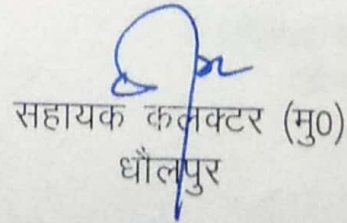 सहायक कलक्टर (मु0)
धौलपुर